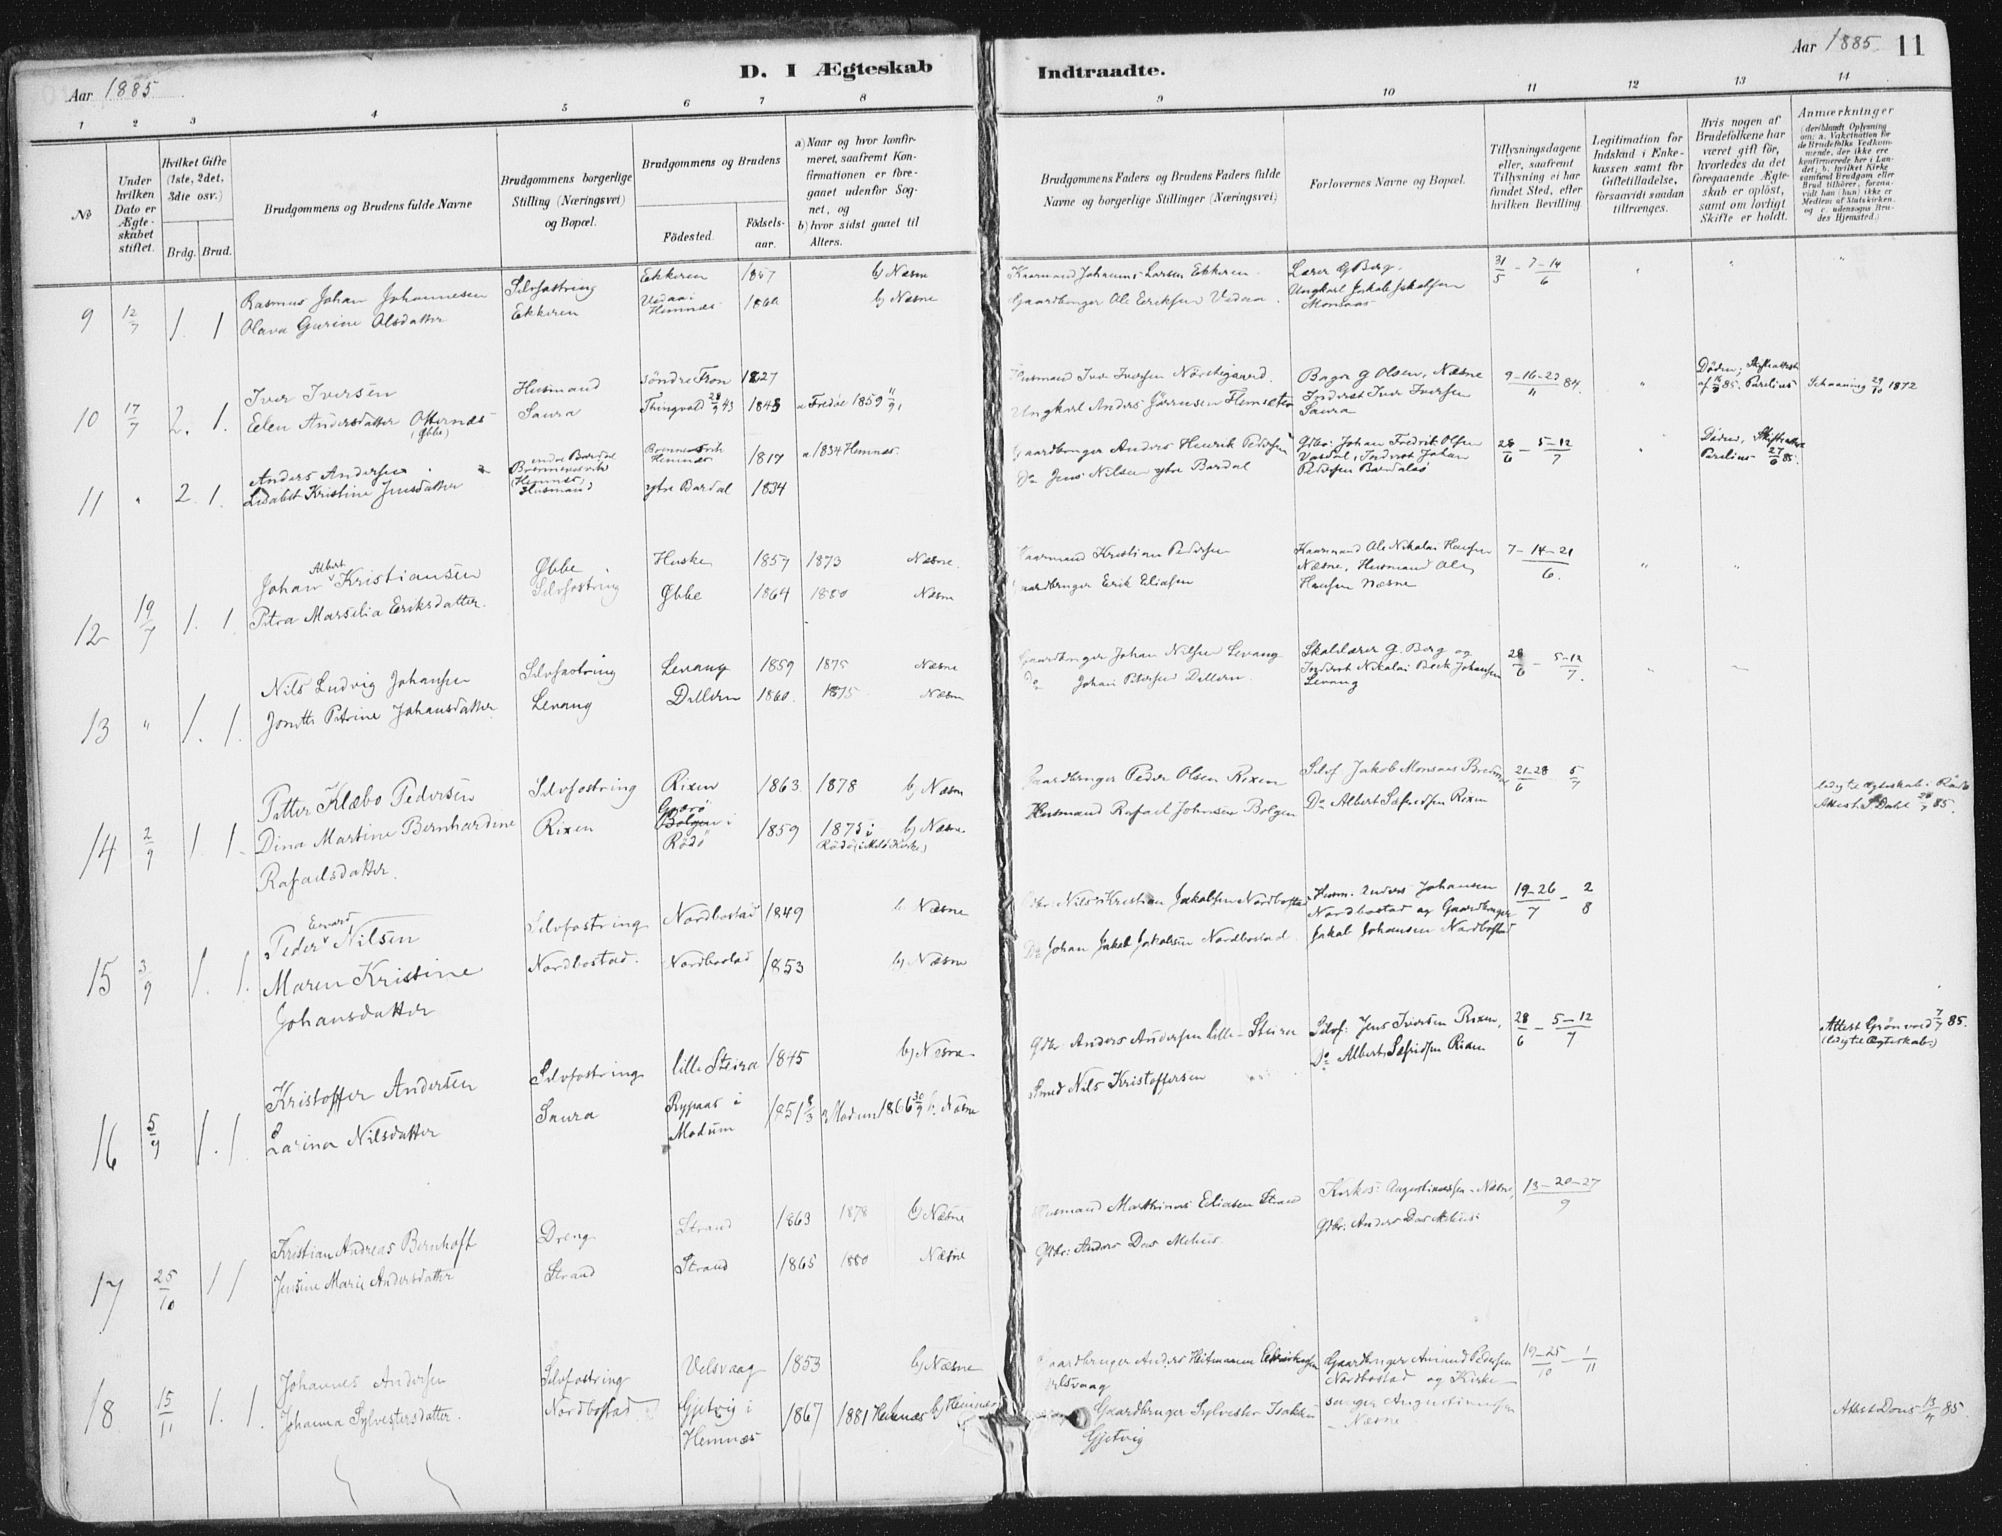 Aar 1885
D. I Ægteskab
Indtraadte.
Aar 1885. 11
1 2 3 4 5 6 7 8 9 10 11 12 13 14
№
Under hvilken Dato er Ægteskabet stiftet.
Hvilket Gifte (1ste, 2det, 3die osv.)
Brdg. Brud.
Brudgommens og Brudens fulde Navne
Brudgommens borgerlige Stilling (Næringsvei) og Bopæl.
Brudgommens og Brudens
Födested. Födselsaar.
a) Naar og hvor konfirmeret, saafremt Konfirmationen er foregaaet udenfor Sognet, og
b) hvor sidst gaaet til Alters.
Brudgommens Faders og Brudens Faders fulde Navne og borgerlige Stillinger (Næringsvei)
Forlovernes Navne og Bopæl.
Tillysningsdagene eller, saafremt Tillysning ei har fundet Sted, efter hvilken Bevilling.
Legitimation for Indskud i Enkekassen samt for Giftetilladelse, forsaavidt saadan tiltrænges.
Hvis nogen af Brudefolkene har været gift för, hvorledes da det foregaaende Ægteskab er oplöst, samt om lovligt Skifte er holdt.
Anmærkninger (deriblandt Oplysning om: a. Vakcination for de Brudefolks Vedkommende, der ikke ere konfirmerede her i Landet; b. hvilket Kirkesamfund Brudgom eller Brud tilhörer, forsaavidt han (hun) ikke er Medlem af Statskirken, og c. udensogns Brudes Hjemsted.)
9 12/7 1. 1
Rasmus Johan Johannesen Selvfostring Ekkeren 1857 b) Næsne
Olava Gurine Olsdatter Ekkeren Hemnæs 1860 b) Næsne
Kaarmand Johannes Larsen Ekkeren. Lærer G Borg.
Gaardbruger Ole Eriksen Ungkarl Jakob Jakobsen Monsaas
31/5 - 7-14/6
10 17/7 2. 1.
Iver Iversen Husmand söndre Fron 1827
Elen Andersdatter Ofternæs (Øbbe) Saura Thingvold 28/9 43 1843 a Fredøe 1859
Husmand Iver Iversen Ungkarl Anders
G Olsen, Næsne Inderst Iver Iversen Saura
9-16-23/11 84.
Döden, Skifteattest Parelius
Schaaning 29/10 1872
11 " 2. 1.
Anders Andersen Hemnæs 1817 a. 1834 Hemnæs.
Lisabet Kristine Jensdatter Husmand ytre Bardal 1834
Gaardbruger Anders Henrik Pedersen Gdbr: Johan Fredrik Olsen
Do Jens Nilsen ytre Bardal Inderst Johan Pedersen
28/6 - 5-12/7
Döden, Skifteattest Parelius 27/6 85.
12 19/7 1. 1.
Johan Albert Kristiansen Øbbe Huske 1857 1873 Næsne.
Petra Marselia Eriksdatter. Selvfostring Øbbe 1864 1880 Næsne
Kaarmand Kristian Pedersen Kaarmand Ole Nikolai Hansen
Gaardbruger Erik Eliasen Næsne, Husmand Ole Hansen Næsne
7-14-21/6.
13 " 1. 1.
Nils Ludvig Johansen Selvfostring Levang 1859 1875 Næsne
Petrine Johansdatter Levang Dellern 1860. 1875 Næsne
Gaardbruger Johan Nilsen Levang Skolelærer G. Borg og
Do Johan Petersen Dellern. Inderst Nikolai Beck Johansen Levang
28/6 - 5-12/7.
14 2/9 1 1.
Petter Klæbo Pedersen Selvfostring Rixen 1863. 1878 b) Næsne
Dina Martine Bernhardine Rafaelsdatter. Rixen Bolgen i Rödö 1859 1875 i Rödö b) Næsne
Gaardbruger Peder Olsen Rixen Selvf Jakob Monsaas
Husmand Rafael Johnsen Bolgen Do Albert Sefridsen Rixen
21-28/6 5/7
ledig til Ægteskab i Rödö Attest Dahl 85.
15 3/9 1. 1.
Peder Edvard Nilsen Selvfostring Nordbostad 1849 b) Næsne
Maren Kristine Johansdatter Nordbostad. Nordbostad 1853 b) Næsne
Gdbr: Nils Kristian Jakobsen Nordbostad Husm. Anders Johansen
Do Johan Jakob Jakobsen Nordbostad. Nordbostad og Gaardbruger Jakob Johansen Nordbostad
19-26/7 - 2/8
16 5/9 1. 1.
Kristoffer Andersen Selvfostring lille Steira 1845 b) Næsne
Larina Nilsdatter Saura Rypaas i Modum 1851 8/3 a Modum 1866 30/9 b. Næsne
Gdbr Anders Andersen Lille-Steira Selvf: Jens Iversen Rixen,
Smed Nils Kristoffersen Do Albert Sefridsen Rixen
28/6 - 5-12/7
Attest Grönvold 7/7 85. (ledig til Ægteskab)
17 25/10 1 1
Kristian Andreas Bernhoft Dreng Strand 1863 1878 b) Næsne
Jensine Marie Andersdatter Strand Strand 1865 1880 Næsne
Husmand Marthinus Eliasen Strand Kirkes: Augustinussen - Næsne
Gdbr: Anders Das Melius. Gdbr: Anders Das Melius
13-20-27/9
18 15/11 1. 1.
Johannes Andersen Selvfostring Velsvaag 1853 b) Næsne
Johanna Sylvestersdatter. Nordbostad Gjetvig i Hemnæs 1867 1881 Hemnæs b) Hemnæs
Gaardbruger Anders Heitmann Velsvaag Gaardbruger Amund Pedersen
Gaardbruger Sylvester Isaksen Gjetvig Nordbostad og Kirkesanger Augustinussen - Næsne
19-25/10 - 1/11
Attest Dons 85.